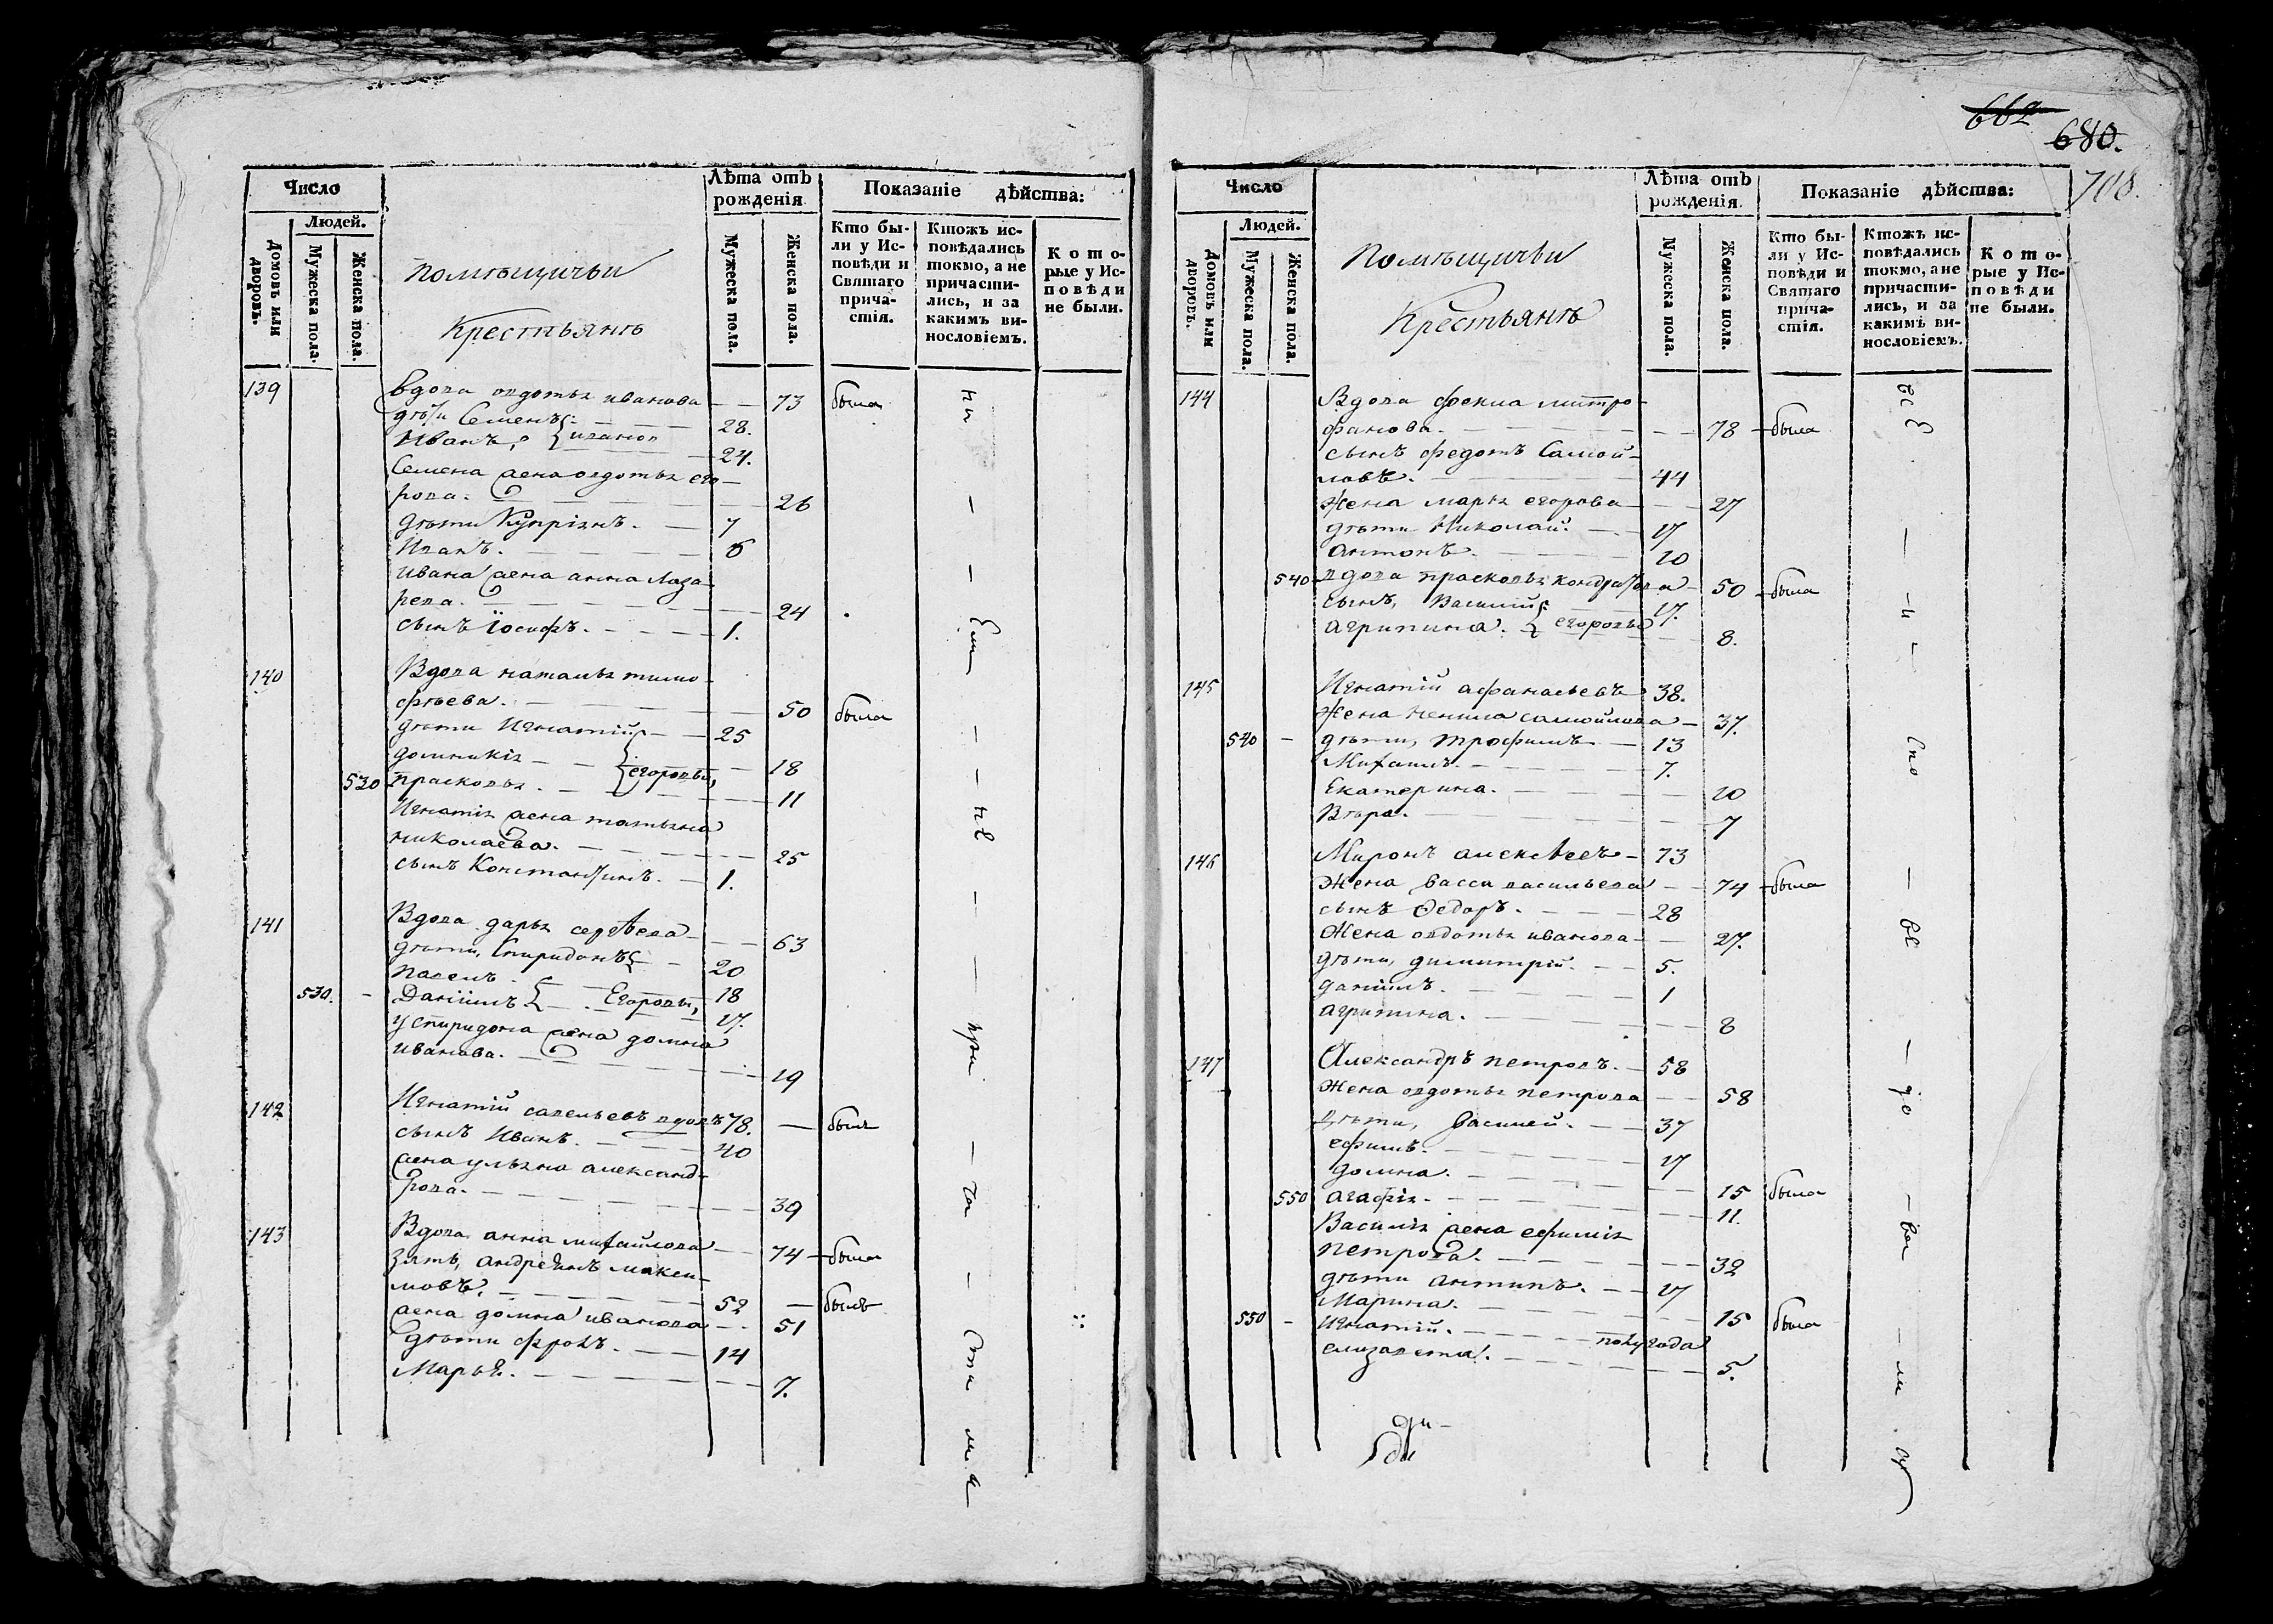 Число
Людей.
Домовъ или дворовъ.
Мужеска пола.
Женска пола.
Помѣщичьи
Крестьянѣ
Лѣта отъ рожденія
Мужеска пола.
Женска пола.
Показаніе дѣйства:
Кто были у Исповѣди и Святаго причастія.
Ктожъ исповѣдались токмо, а не причастились, и за какимъ винословіемъ.
Которые у Исповѣди не были.
139 Вдова авдотья иванова — — 73 была
дѣти Семенъ — — 28.
Иванъ, ивановы — 24.
Семена жена авдотья его-
рова. — — 26
дѣти Купріянъ. — 7
Иванъ. — — 6
Ивана жена анна Лаза-
рева. — — 24
сынъ Іосифъ. — — 1.
140 Вдова наталья тимо-
фѣева. — — 50 была
дѣти Игнатій — — 25
домникія — — 18
520 прасковья. егоровы, — 11
Игнатія жена татьяна
николаева. — — 25
сынъ Константинъ. — 1.
141 Вдова дарья сергѣева — — 63
дѣти, Спиридонъ — — 20
павелъ — 18
530. — Даніилъ — Егоровы, 17.
у спиридона жена домна
иванова. — — 19
142 Игнатій савельевъ вдовъ 78. — былъ
сынъ Иванъ. — — 40
жена ульяна александ-
рова. — — 39
143 Вдова анна михайлова — — 74 — была
зять, андреянъ макси-
мовъ. — — 52 — былъ
жена домна иванова — — 51
дѣти фролъ. — — 14
Марья. — — 7.
662
680.
708.
Число
Людей.
Домовъ или дворовъ.
Мужеска пола.
Женска пола.
Помѣщичьи
Крестьянѣ
Лѣта отъ рожденія.
Мужеска пола.
Женска пола.
Показаніе дѣйства:
Кто были у Исповѣди и Святаго причастія.
Ктожъ исповѣдались токмо, а не причастились, и за какимъ винословіемъ.
Которые у Исповѣди не были.
144 Вдова фекла митро-
фанова. — — 78 — была
сынъ федотъ Самой-
ловъ. — — 44
жена марья егорова — — 27
дѣти Николай. — 17
антонъ. — — 10
540 — вдова прасковья кондратова — 50 — была
сынъ, Василій — 17.
агрипина. егоровы — 8.
145 Игнатій афанасьевъ 38.
жена ненила самойлова — 37.
540 — дѣти, трофимъ — 13
Михаилъ. — — 7.
Екатерина. — — 10
Вѣра. — — 7
146 Миронъ алексѣевъ — 73
жена васса васильева — — 74 — была
сынъ Ѳедоръ. — — 28
жена авдотья иванова — — 27.
дѣти, димитрій. — — 5.
даніилъ. — — 1
агрипина. — — 8
147 Александръ петровъ. — 58
жена авдотья петрова — — 58
дѣти, василей. — — 37
ефимъ. — — 17
домна. — — 15 была
550 агафія. — — 11.
Василія жена ефимія
петрова. — — 32
дѣти антипъ. — — 17
Марина. — — 15 была
550 — игнатій. — — полугода
елизавета. — — 5.